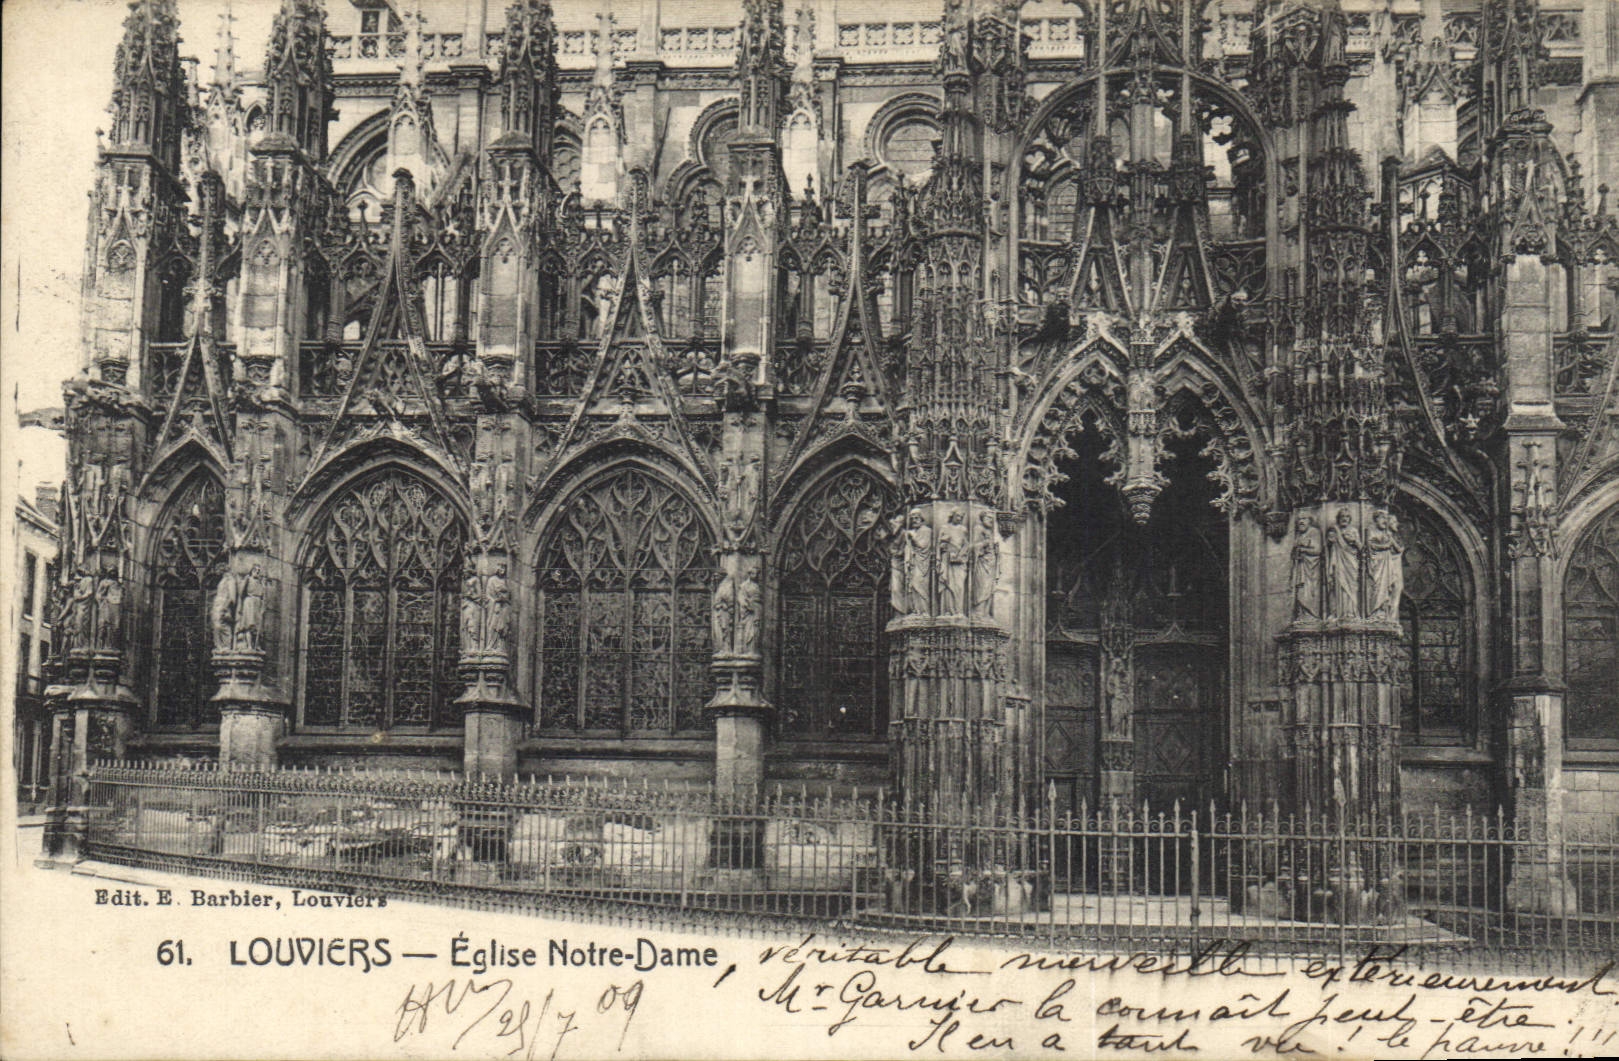 Edit. E. Barbier, Louviers
61. LOUVIERS — Église Notre-Dame, véritable merveille extérieurement.
Mr Garnier la connaît peut-être.
Il en a tant vu! le pauvre!!!
25/7 09